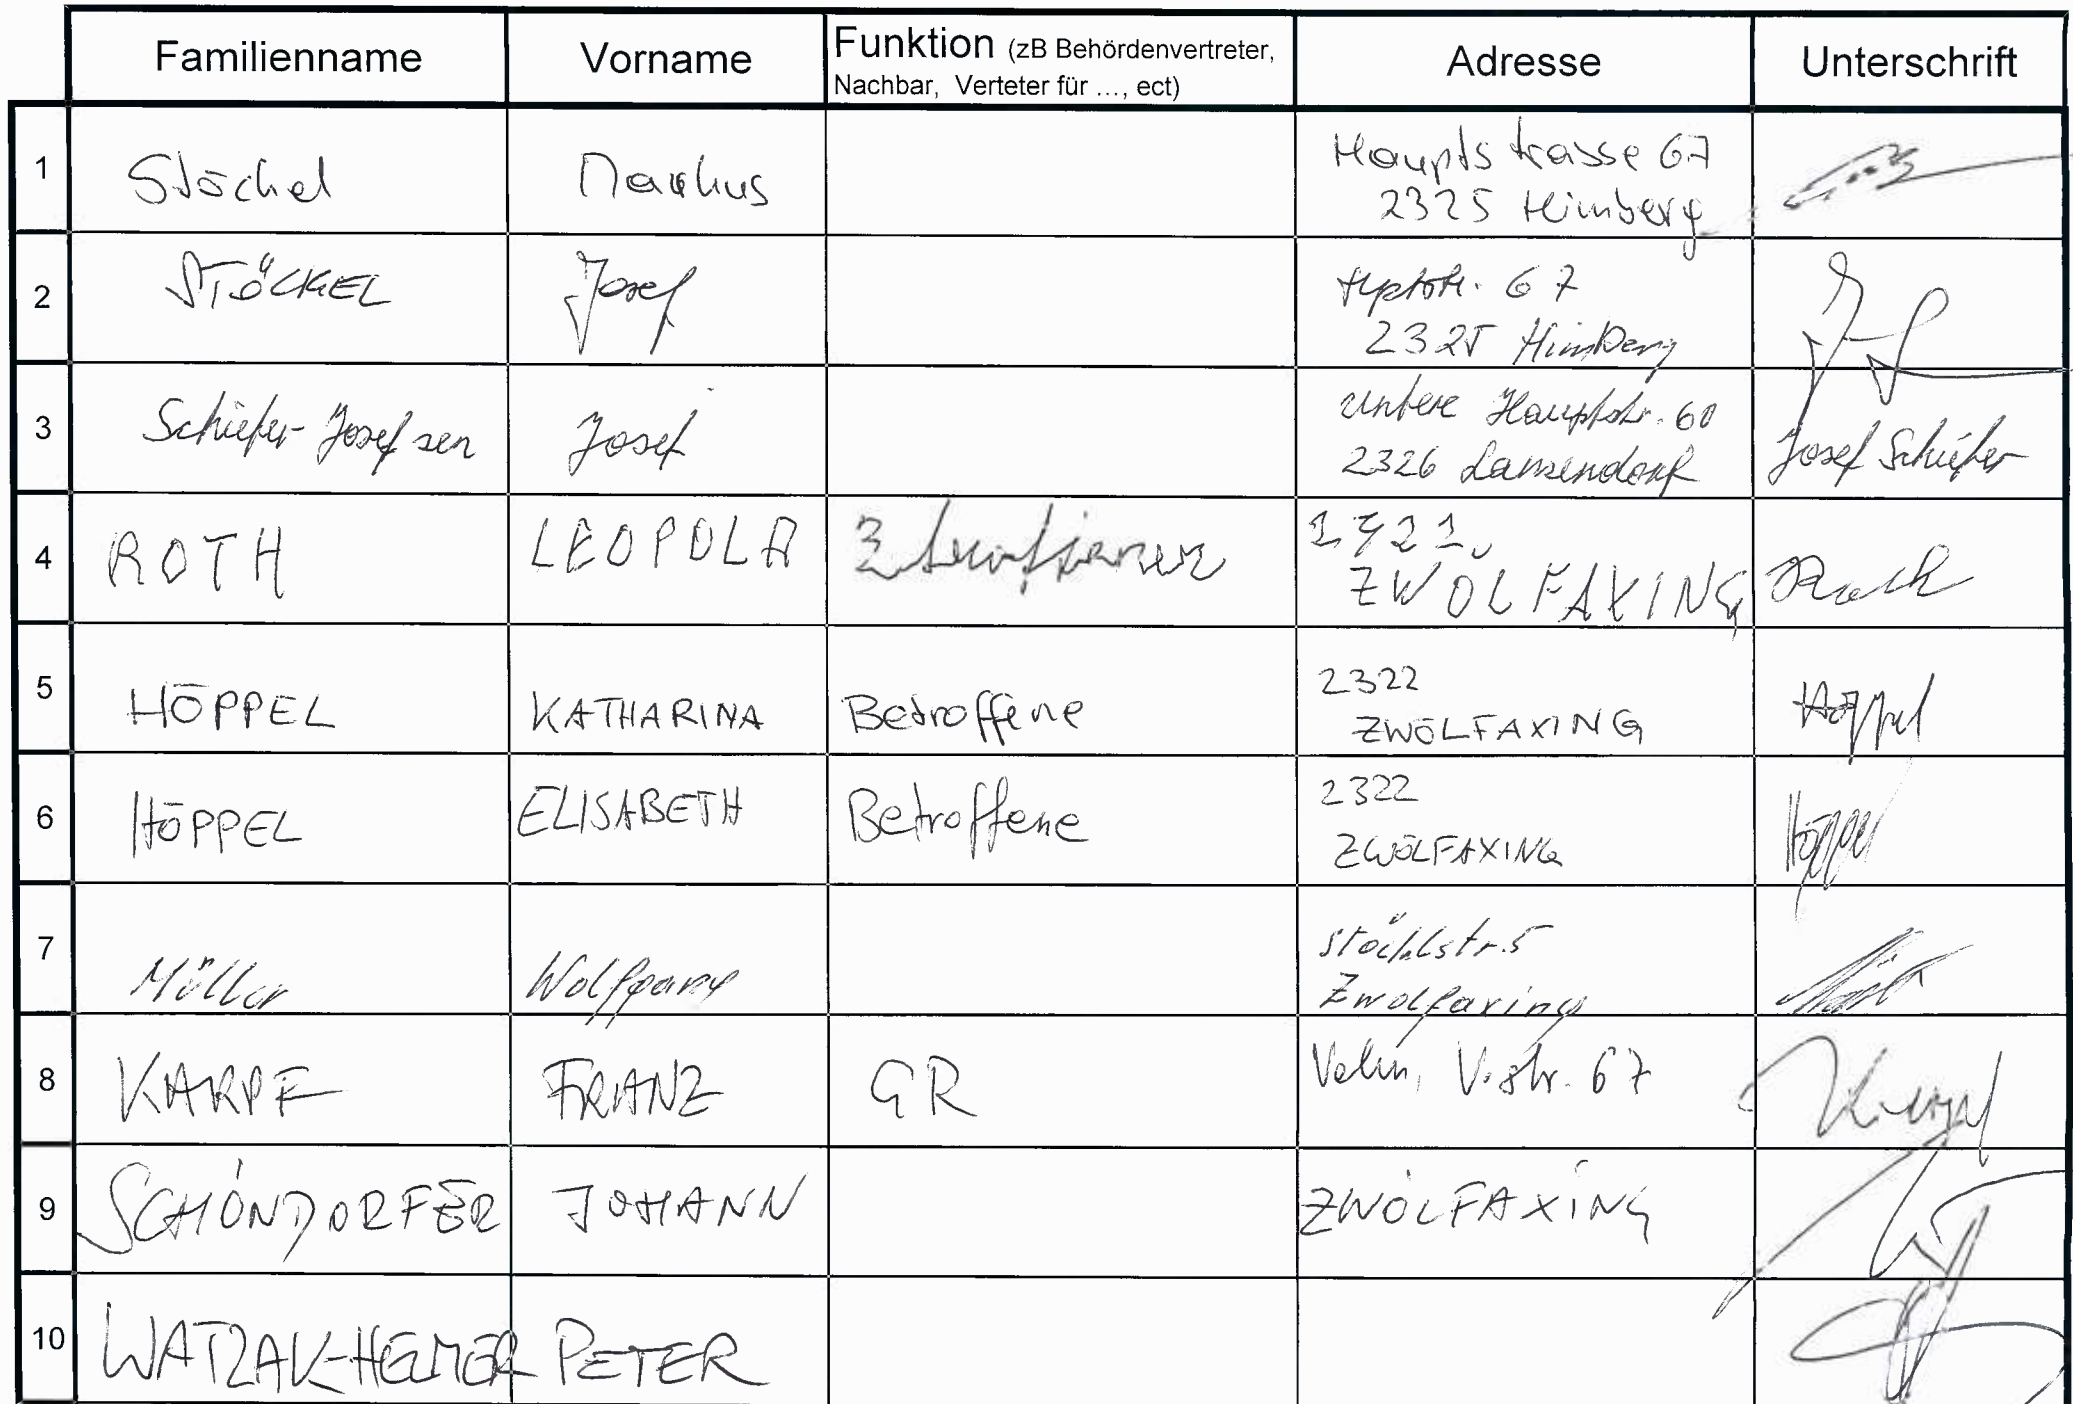 Familienname Vorname Funktion (zB Behördenvertreter, Nachbar, Verteter für ..., ect) Adresse Unterschrift
1 Stöckel Markus Hauptstrasse 67
2325 Himberg
2 STÖCKEL Josef Hptstr. 67
2325 Himberg
3 Schiefer Josef sen Josef untere Hauptstr. 60 Josef Schiefer
2326 Lanzendorf
4 ROTH LEOPOLD Roth
ZWÖLFAXING
5 HÖPPEL KATHARINA Betroffene 2322 Höppel
ZWÖLFAXING
6 HÖPPEL ELISABETH Betroffene 2322 Höppel
ZWÖLFAXING
7 Müller Wolfgang
Zwölfaxing
8 KARPF FRANZ GR Velm, V.str. 67
9 SCHÖNDORFER JOHANN ZWÖLFAXING
10 WATZAK-HELMER PETER